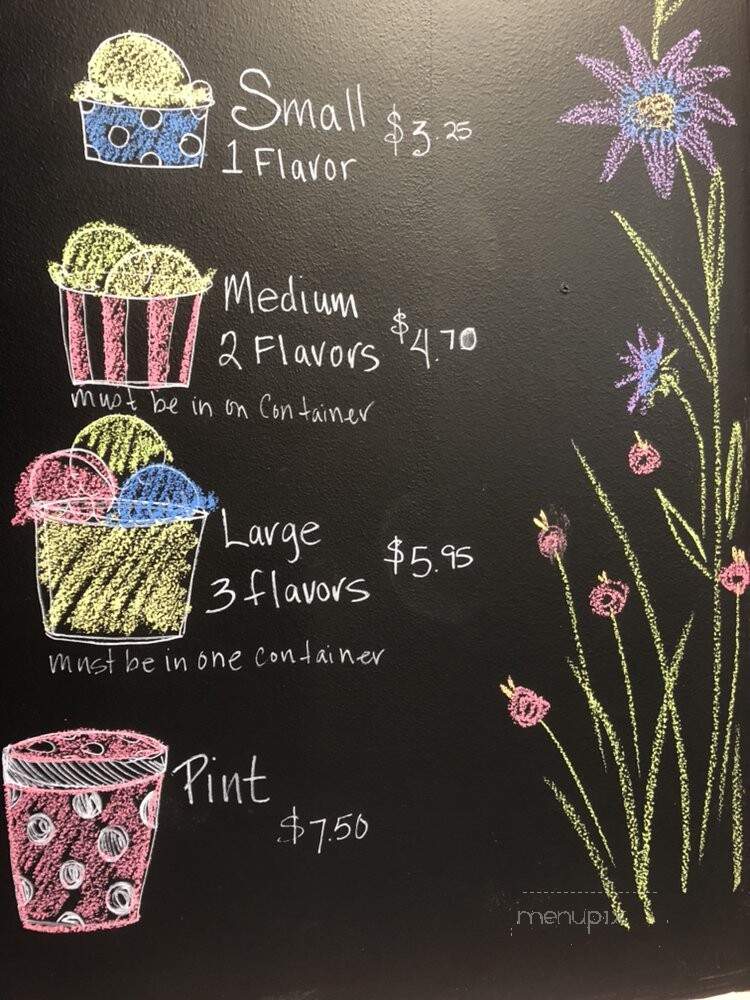 Small $3.25
1 Flavor
Medium
2 Flavors $4.70
must be in on Container
Large $5.95
3 flavors
must be in one container
Pint
$7.50
menupix